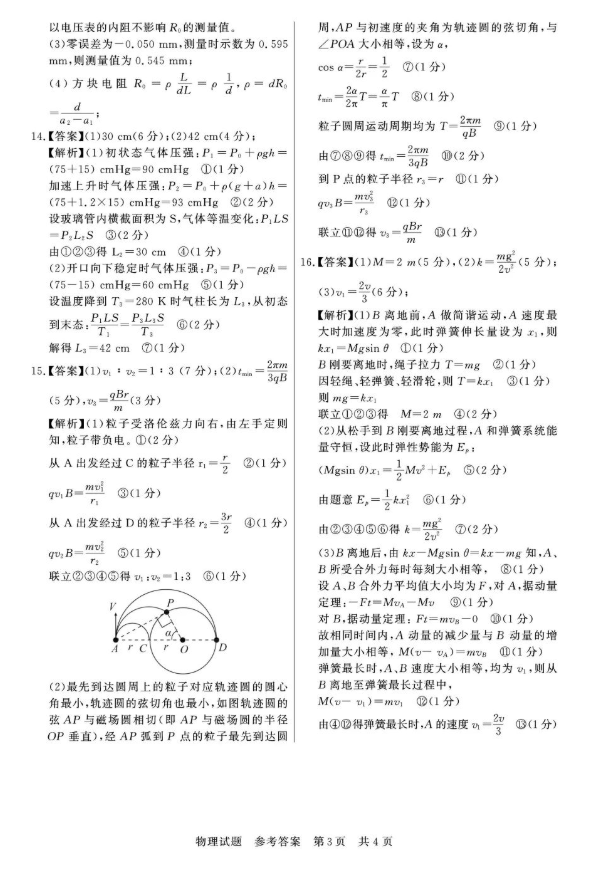 以电压表的内阻不影响 R₀的测量值。
(3)零误差为-0.050 mm,测量时示数为 0.595
mm,则测量值为 0.545 mm;
(4) 方 块 电 阻 R₀ = ρ L/dL = ρ 1/d , ρ = dR₀
= d/(a₂-a₁);
14.【答案】(1)30 cm(6 分);(2)42 cm(4 分);
【解析】(1)初状态气体压强:P₁=P₀+ρgh=
(75+15) cmHg=90 cmHg ①(1 分)
加速上升时气体压强:P₂=P₀+ρ(g+a)h=
(75+1.2×15) cmHg=93 cmHg ②(2 分)
设玻璃管内横截面积为 S,气体等温变化:P₁LS
=P₂L₂S ③(2 分)
由①②③得 L₂=30 cm ④(1 分)
(2)开口向下稳定时气体压强:P₃=P₀-ρgh=
(75-15) cmHg=60 cmHg ⑤(1 分)
设温度降到 T₃=280 K 时气柱长为 L₃,从初态
到末态:P₁LS/T₁=P₃L₃S/T₃ ⑥(2 分)
解得 L₃=42 cm ⑦(1 分)
15.【答案】(1)v₁∶v₂=1∶3 (7 分);(2)tmin=2πm/3qB
(5 分),v₃=qBr/m(3 分)
【解析】(1)粒子受洛伦兹力向右,由左手定则
知,粒子带负电。①(2 分)
从 A 出发经过 C 的粒子半径 r₁=r/2 ②(1 分)
qv₁B=mv₁²/r₁ ③(1 分)
从 A 出发经过 D 的粒子半径 r₂=3r/2 ④(1 分)
qv₂B=mv₂²/r₂ ⑤(1 分)
联立②③④⑤得 v₁:v₂=1:3 ⑥(1 分)
V P
α
A r C r O D
(2)最先到达圆周上的粒子对应轨迹圆的圆心
角最小,轨迹圆的弦切角也最小,如图轨迹圆的
弦 AP 与磁场圆相切(即 AP 与磁场圆的半径
OP 垂直),经 AP 弧到 P 点的粒子最先到达圆
周,AP 与初速度的夹角为轨迹圆的弦切角,与
∠POA 大小相等,设为 α,
cos α=r/2r=1/2 ⑦(1 分)
tmin=2α/2π T=α/π T ⑧(1 分)
粒子圆周运动周期均为 T=2πm/qB ⑨(1 分)
由⑦⑧⑨得 tmin=2πm/3qB ⑩(2 分)
到 P 点的粒子半径 r₃=r ⑪(1 分)
qv₃B=mv₃²/r₃ ⑫(1 分)
联立⑪⑫得 v₃=qBr/m ⑬(1 分)
16.【答案】(1)M=2 m(5 分),(2)k=mg²/2v²(5 分);
(3)v₁=2v/3(6 分);
【解析】(1)B 离地前,A 做简谐运动,A 速度最
大时加速度为零,此时弹簧伸长量设为 x₁,则
kx₁=Mgsin θ ①(1 分)
B 刚要离地时,绳子拉力 T=mg ②(1 分)
因轻绳、轻弹簧、轻滑轮,则 T=kx₁ ③(1 分)
则 mg=kx₁
联立①②③得 M=2 m ④(2 分)
(2)从松手到 B 刚要离地过程,A 和弹簧系统能
量守恒,设此时弹性势能为 Eₚ:
(Mgsin θ)x₁=1/2Mv²+Eₚ ⑤(2 分)
由题意 Eₚ=1/2kx₁² ⑥(1 分)
由②③④⑤⑥得 k=mg²/2v² ⑦(2 分)
(3)B 离地后,由 kx-Mgsin θ=kx-mg 知,A、
B 所受合外力每时每刻大小相等, ⑧(1 分)
设 A、B 合外力平均值大小均为 F,对 A,据动量
定理:-Ft=MvA-Mv ⑨(1 分)
对 B,据动量定理: Ft=mvB-0 ⑩(1 分)
故相同时间内,A 动量的减少量与 B 动量的增
加量大小相等, M(v- vA)=mvB ⑪(1 分)
弹簧最长时,A、B 速度大小相等,均为 v₁,则从
B 离地至弹簧最长过程中,
M(v- v₁)=mv₁ ⑫(1 分)
由④⑫得弹簧最长时,A 的速度 v₁=2v/3 ⑬(1 分)
物理试题 参考答案 第 3 页 共 4 页